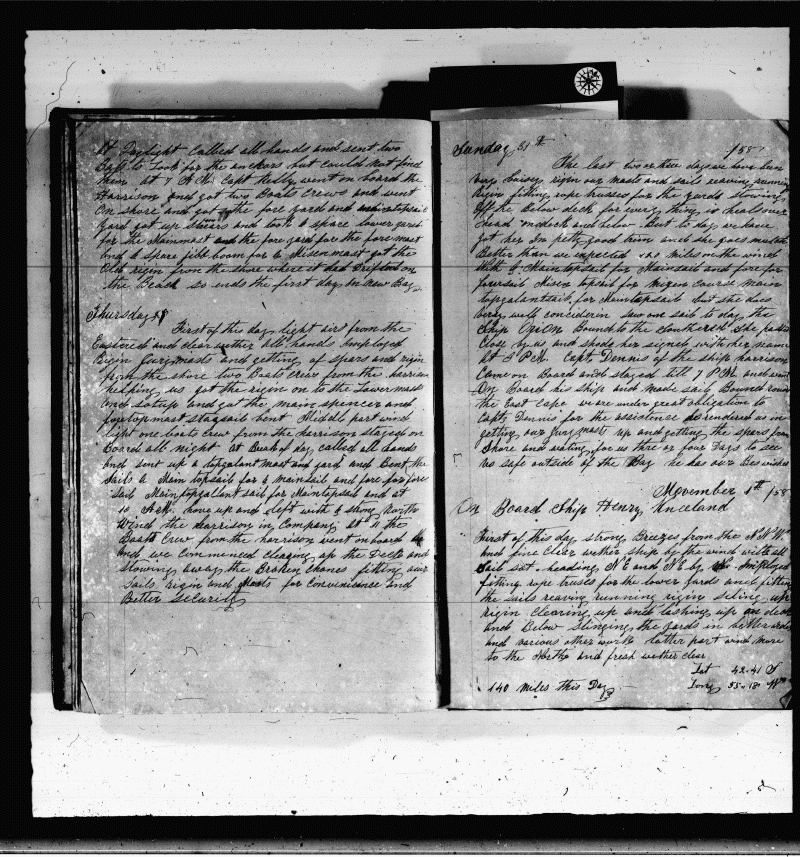 At Daylight called all hands and sent two
Boats to Look for the anchors but could not find
them at 7 A.M. Capt Kelly went on board the
Harrison and got two Boats Crews and went
On shore and got the fore yard and maintopsail
yard got up shears and took a spare lower yard
for the Mainmast and the fore yard for the foremast
and a spare jibb boom for a Misenmast got the
Old rigin from the shore where it had Drifted on
the Beach so ends the first day in New Bay
Thursday 28
First of this day light airs from the
Eastward and clear wether all hands Employed
Rigin Jury masts and getting of spars and rigin
from the shore two Boats Crew from the harrison
helping us got the rigin on to the Lower masts
and setup and got the main spencer and
foretopmast staysail bent Middle part wind
light one boats Crew from the harrison stayed on
Board all night at Break of day called all hands
and sent up a topgalant mast and yard and Bent the
Sails a Main topsail for a mainsail and fore for fore
sail Maintopgalant sail for Maintopsail and at
10 A.M. hove up and left with a strong North
Wind the Harrison in Company at 11 the
Boats Crew from the harrison went on board
and we commenced clearing up the Decks and
stowing away the Broken chanes fitting our
sails rigin and Masts for convenience and
Better Security
Sunday 31th /58
The last two or three days we have been
very buisey rigin our masts and sails reaving running
rigin fitting rope trusses for the yards stowing
off the Below deck for every thing is heels over
head on deck and below But to day we have
got her In petty good trim and she goes much
Better than we expected miles on the wind
With a Maintopsail for Mainsail and fore for
foresail Misen topsail for mizen course main
topgalantsail for Maintopsail but she does
very well considerin saw one sail to day the
Ship Orion Bound to the Southered she passed
Close by us and showed her signal with her name
At 5 P.M. Capt Dennis of the ship harrison
Came on Board and stayed till 7 P.M. and went
On Board his ship and made sail Bound round
the East Cape we are under great obligation to
Capt Dennis for the assistence he rendered us in
getting our Jury masts up and getting the spars from
Shore and waiting for us thre or four Days to see
us safe outside of the Bay he has our Bes wishes
November 1th /58
On Board Ship Henry Kneeland
First of this day strong Breezes from the N N W
and fine Clear wether ship by the wind with all
Sail set heading N E and N E by Employed
fitting rope truses for the lower yards and fitting
the sails reaving running rigin siting up
rigin Clearing up and lashing up on deck
and Below Slinging the yards in better order
and various other work latter part wind more
to the North and fresh wether clear
Lat 42-41 S
140 Miles this Day Long 55-18 W